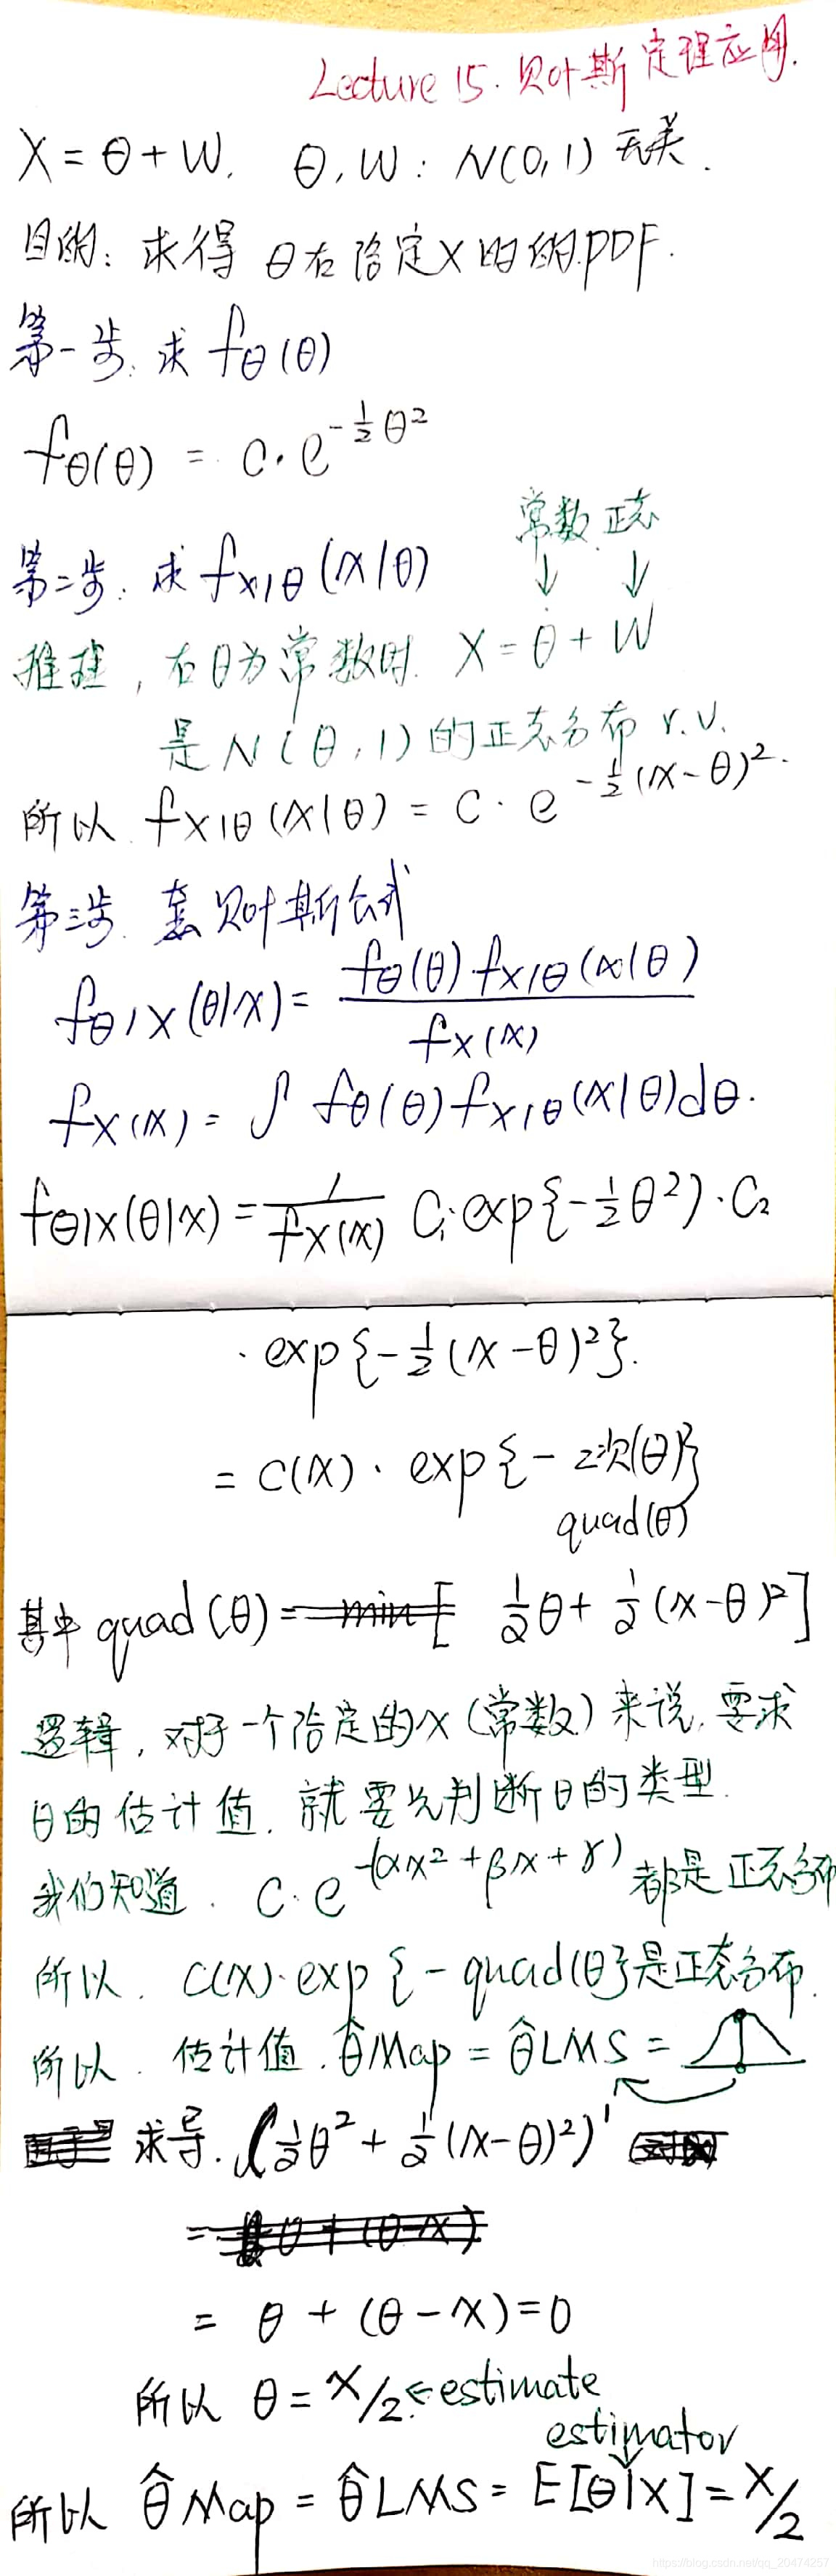 Lecture 15. 贝叶斯定理应用.
X = θ + W. θ, W : N(0,1) 无关.
目的: 求得 θ在给定X时的PDF.
第一步. 求 fθ(θ)
fθ(θ) = C·e^{-1/2 θ²}
常数 正态
↓ ↓
第二步. 求 f_{X|θ}(x|θ)
推理, 在θ为常数时. X = θ + W
是 N(θ,1) 的正态分布 r.v.
所以 f_{X|θ}(x|θ) = C·e^{-1/2 (x-θ)²}.
第三步. 套贝叶斯公式
f_{θ|X}(θ|x) = fθ(θ)·f_{X|θ}(x|θ) / f_X(x)
f_X(x) = ∫ fθ(θ) f_{X|θ}(x|θ)dθ.
f_{θ|X}(θ|x) = 1/f_X(x) C₁·exp{-1/2 θ²)·C₂
· exp{-1/2 (x-θ)²}.
= C(x) · exp{- 2次(θ)}
quad(θ)
其中 quad(θ) = min [ 1/2 θ + 1/2 (x-θ)²]
逻辑, 对于一个给定的x (常数) 来说, 要求
θ的估计值, 就要先判断θ的类型.
我们知道. C·e^{-(αx²+βx+γ)} 都是正态分布
所以. C(x)·exp{-quad(θ)}是正态分布.
所以. 估计值. θ̂Map = θ̂LMS =
求导. (1/2 θ² + 1/2 (x-θ)²)'
= θ + (θ-x)
= θ + (θ-x) = 0
所以 θ = x/2. ← estimate
estimator
所以 θ̂Map = θ̂LMS = E[θ|X] = X/2
https://blog.csdn.net/qq_20474257